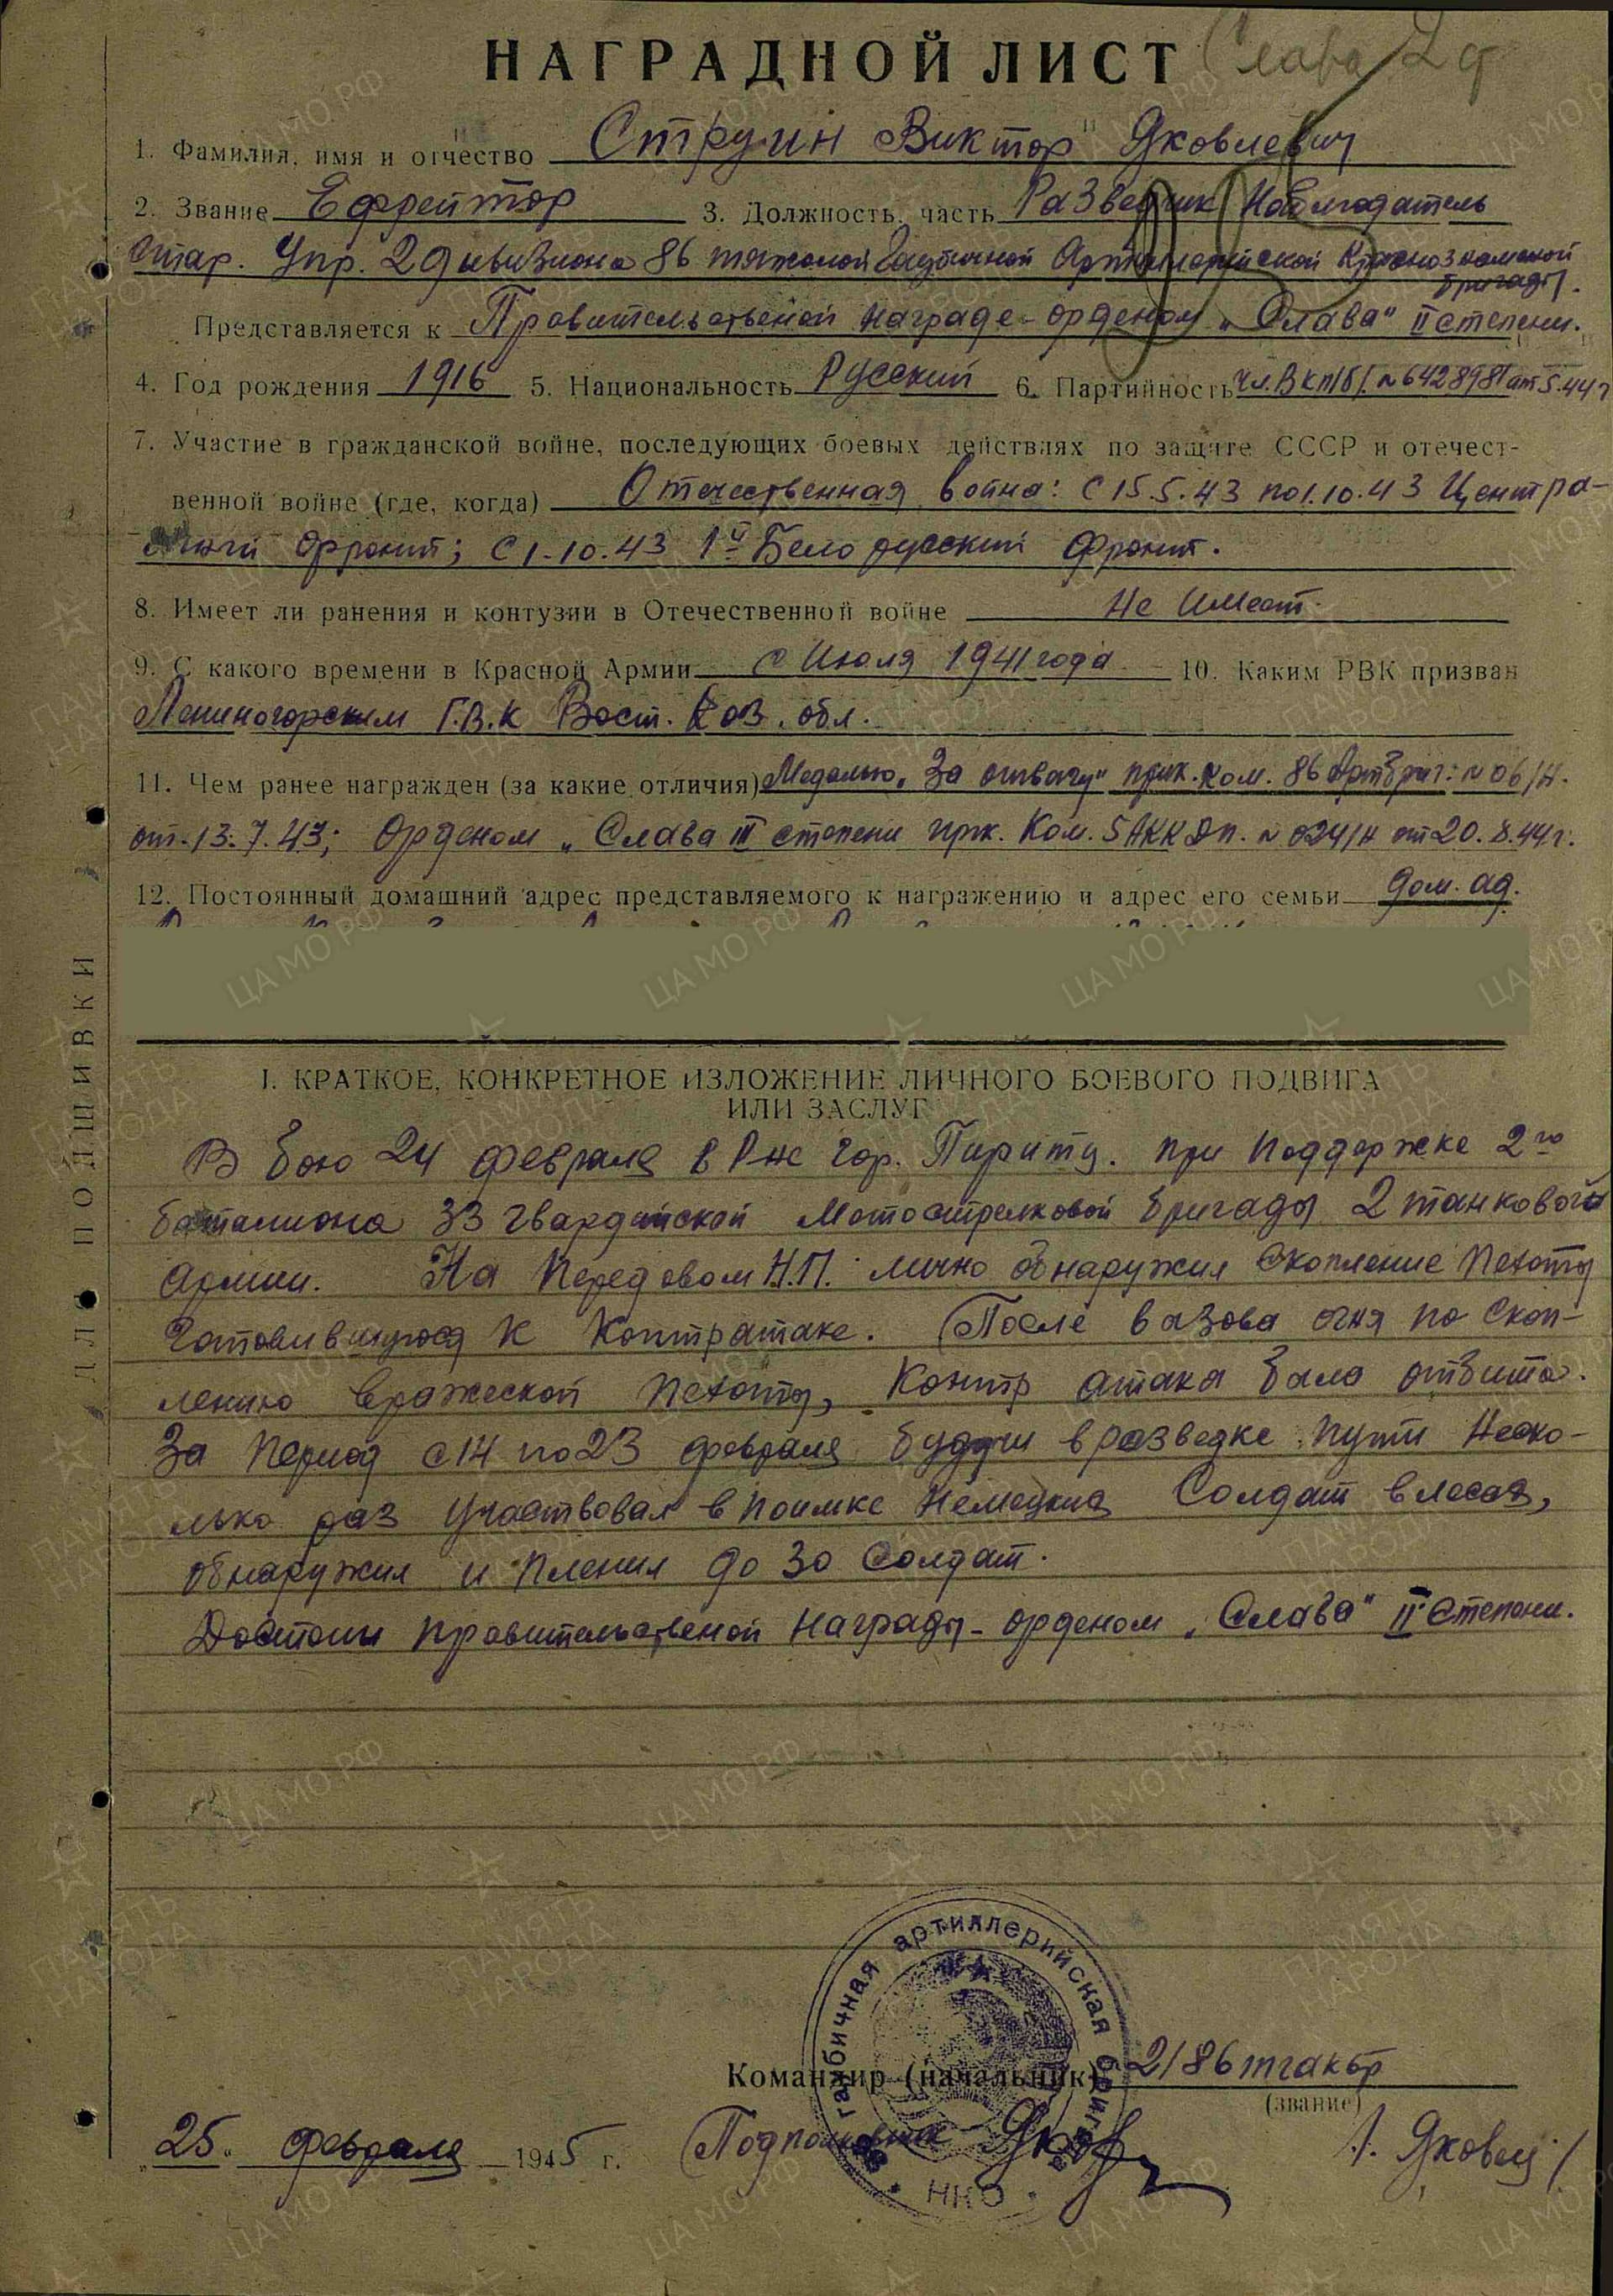 НАГРАДНОЙ ЛИСТ Слава 2 ст
1. Фамилия, имя и отчество Стругин Виктор Яковлевич
2. Звание Ефрейтор 3. Должность, часть Разведчик Наблюдатель
Упр. 2 дивизиона 86 тяжолой Гаубичной Артиллерийской Краснознаменой
бригады.
Представляется к Правительственой награде - орденом „Слава" II степени.
4. Год рождения 1916 5. Национальность Русский 6. Партийность чл. ВКП/б/ №6428981 от 5.44г
7. Участие в гражданской войне, последующих боевых действиях по защите СССР и отечест-
венной войне (где, когда) Отечественная война: с 15.5.43 по 1.10.43 Центра-
льный фронт; с 1-10.43 1й Белорусский фронт.
8. Имеет ли ранения и контузии в Отечественной войне Не имеет.
9. С какого времени в Красной Армии с Июля 1941 года 10. Каким РВК призван
Лениногорским Г.В.К Вост. Каз. обл.
11. Чем ранее награжден (за какие отличия) Медалью „За отвагу" прик. ком. 86 Артбриг: №06/Н.
от. 13.7.43; Орденом „Слава III степени прк. Ком. 5 АККДп. №024/н от 20.8.44г.
12. Постоянный домашний адрес представляемого к награжению и адрес его семьи дом. ад.
ДЛЯ ПОДШИВКИ
I. КРАТКОЕ, КОНКРЕТНОЕ ИЗЛОЖЕНИЕ ЛИЧНОГО БОЕВОГО ПОДВИГА
ИЛИ ЗАСЛУГ
В бою 24 февраля в Р-не гор. Пириту. при поддержке 2го
баталиона 33 гвардейской Мотострелковой бригады 2 танковой
армии. На передовом Н.П. лично обнаружил скопление пехоты
готовившуюся к контратаке. После вазова огня по скоп-
лению вражеской пехоты, Контр атака была отбита.
За период с 14 по 23 февраля будучи в разведке пути Неско-
лько раз участвовал в поимке Немецких Солдат в лесах,
обнаружил и пленил до 30 солдат.
Достоин правительственой Награды - орденом „Слава" II степени.
гаубичная артиллерийская бригада
НКО
Командир (начальник) 2/86 тгакбр
(звание)
„25" февраля 1945 г. Подполковник /. Яковец /
ПАМЯТЬ НАРОДА
ЦА МО РФ